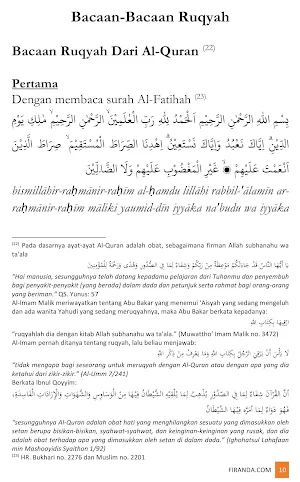 Bacaan-Bacaan Ruqyah
Bacaan Ruqyah Dari Al-Quran (22)
Pertama
Dengan membaca surah Al-Fatihah (23)
بِسْمِ اللَّهِ الرَّحْمَٰنِ الرَّحِيْمِ الْحَمْدُ لِلَّهِ رَبِّ الْعٰلَمِيْنَ الرَّحْمٰنِ الرَّحِيْمِ مٰلِكِ يَوْمِ
الدِّيْنِ إِيَّاكَ نَعْبُدُ وَإِيَّاكَ نَسْتَعِيْنُ اهْدِنَا الصِّرَاطَ الْمُسْتَقِيْمَ صِرَاطَ الَّذِيْنَ
أَنْعَمْتَ عَلَيْهِمْ غَيْرِ الْمَغْضُوْبِ عَلَيْهِمْ وَلَا الضَّالِّيْنَ
bismillâhir-raḥmânir-raḥîm al-ḥamdu lillâhi rabbil-'âlamîn ar-
raḥmânir-raḥîm mâliki yaumid-dîn iyyâka na'budu wa iyyâka
(22) Pada dasarnya ayat-ayat Al-Quran adalah obat, sebagaimana firman Allah subhanahu wa
ta'ala
يَا أَيُّهَا النَّاسُ قَدْ جَاءَتْكُمْ مَوْعِظَةٌ مِنْ رَبِّكُمْ وَشِفَاءٌ لِمَا فِي الصُّدُورِ وَهُدًى وَرَحْمَةٌ لِلْمُؤْمِنِينَ
"Hai manusia, sesungguhnya telah datang kepadamu pelajaran dari Tuhanmu dan penyembuh
bagi penyakit-penyakit (yang berada) dalam dada dan petunjuk serta rahmat bagi orang-orang
yang beriman." QS. Yunus: 57
Al-Imam Malik meriwayatkan tentang Abu Bakar yang menemui 'Aisyah yang sedang mengeluh
dan ada wanita Yahudi yang sedang meruqyahnya, maka Abu Bakar berkata kepadanya:
ارْقِيهَا بِكِتَابِ اللَّهِ
"ruqyahlah dia dengan kitab Allah subhanahu wa ta'ala." (Muwattho' Imam Malik no. 3472)
Al-Imam pernah ditanya tentang ruqyah, lalu beliau menjawab:
لَا بَأْسَ أَنْ يَرْقِيَ الرَّجُلُ بِكِتَابِ اللَّهِ وَمَا يَعْرِفُ مِنْ ذِكْرِ اللَّهِ
"tidak mengapa bagi seseorang untuk meruqyah dengan Al-Quran atau dengan apa yang dia
ketahui dari zikir-zikir." (Al-Umm 7/241)
Berkata Ibnul Qoyyim:
"sesungguhnya Al-Quran adalah obat hati yang menghilangkan sesuatu yang dimasukkan oleh
setan berupa bisikan-bisikan, syahwat-syahwat, dan keinginan-keinginan yang rusak, dan dia
adalah obat terhadap apa yang dimasukkan oleh setan di dalam dada." (Ighatsatul Lahafaan
min Mashooyidis Syaithon 1/92)
(23) HR. Bukhari no. 2276 dan Muslim no. 2201
FIRANDA.COM 10